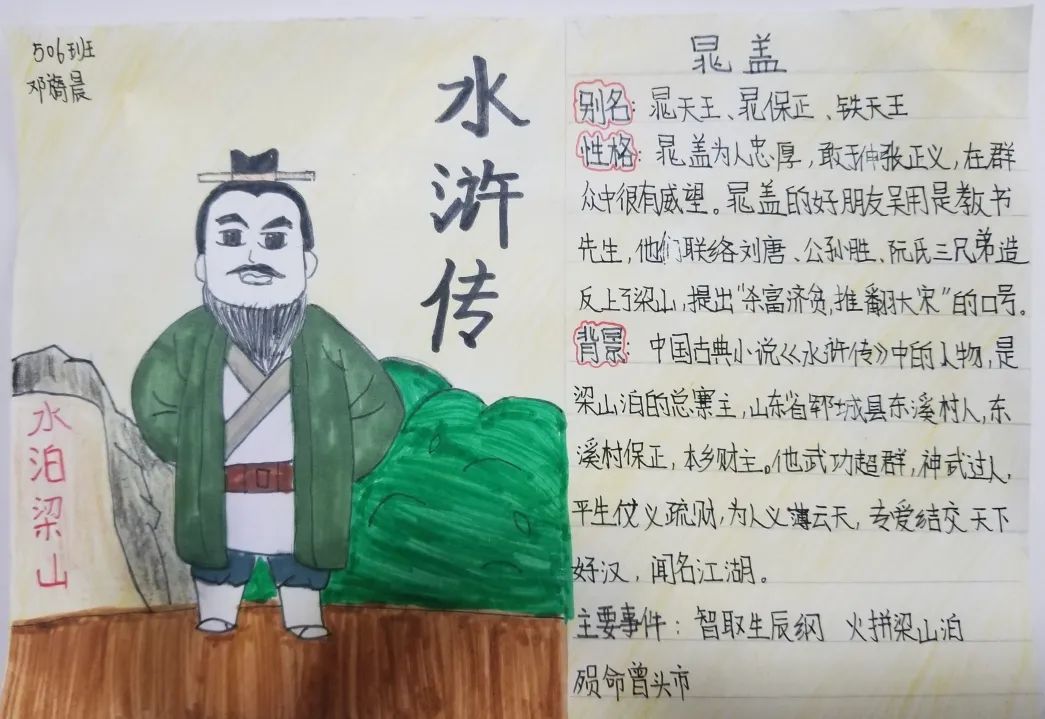 506班
邓
晨
水浒传
水泊梁山
晁盖
别名：晁天王、晁保正、铁天王
性格：晁盖为人忠厚，敢于伸张正义，在群
众中很有威望。晁盖的好朋友吴用是教书
先生，他们联络刘唐、公孙胜、阮氏三兄弟造
反上了梁山，提出“杀富济贫，推翻大宋”的口号。
背景：中国古典小说《水浒传》中的人物，是
梁山泊的总寨主，山东省郓城县东溪村人，东
溪村保正，本乡财主。他武功超群，神武过人，
平生仗义疏财，为人义薄云天，专爱结交天下
好汉，闻名江湖。
主要事件：智取生辰纲 火拼梁山泊
殒命曾头市